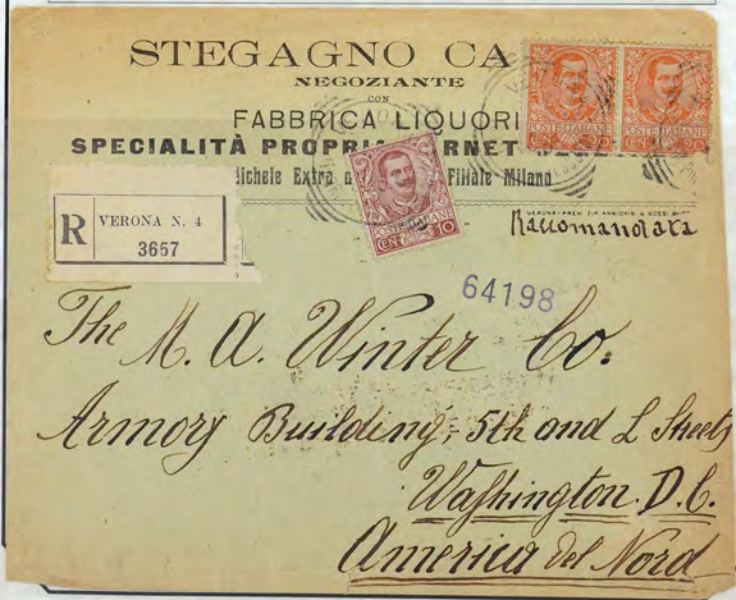 STEGAGNO CA
NEGOZIANTE
CON
FABBRICA LIQUORI
SPECIALITÀ PROPRI RNET
ichele Extra a Filiale Milano
POSTE ITALIANE
CENT. 20
POSTE ITALIANE
CENT. 20
POSTE ITALIANE
CENT. 10
Raccomandata
R VERONA N. 4
3657
64198
The M. A. Winter Co.
Armory Building, 5th and L Streets
Washington. D.C.
America del Nord